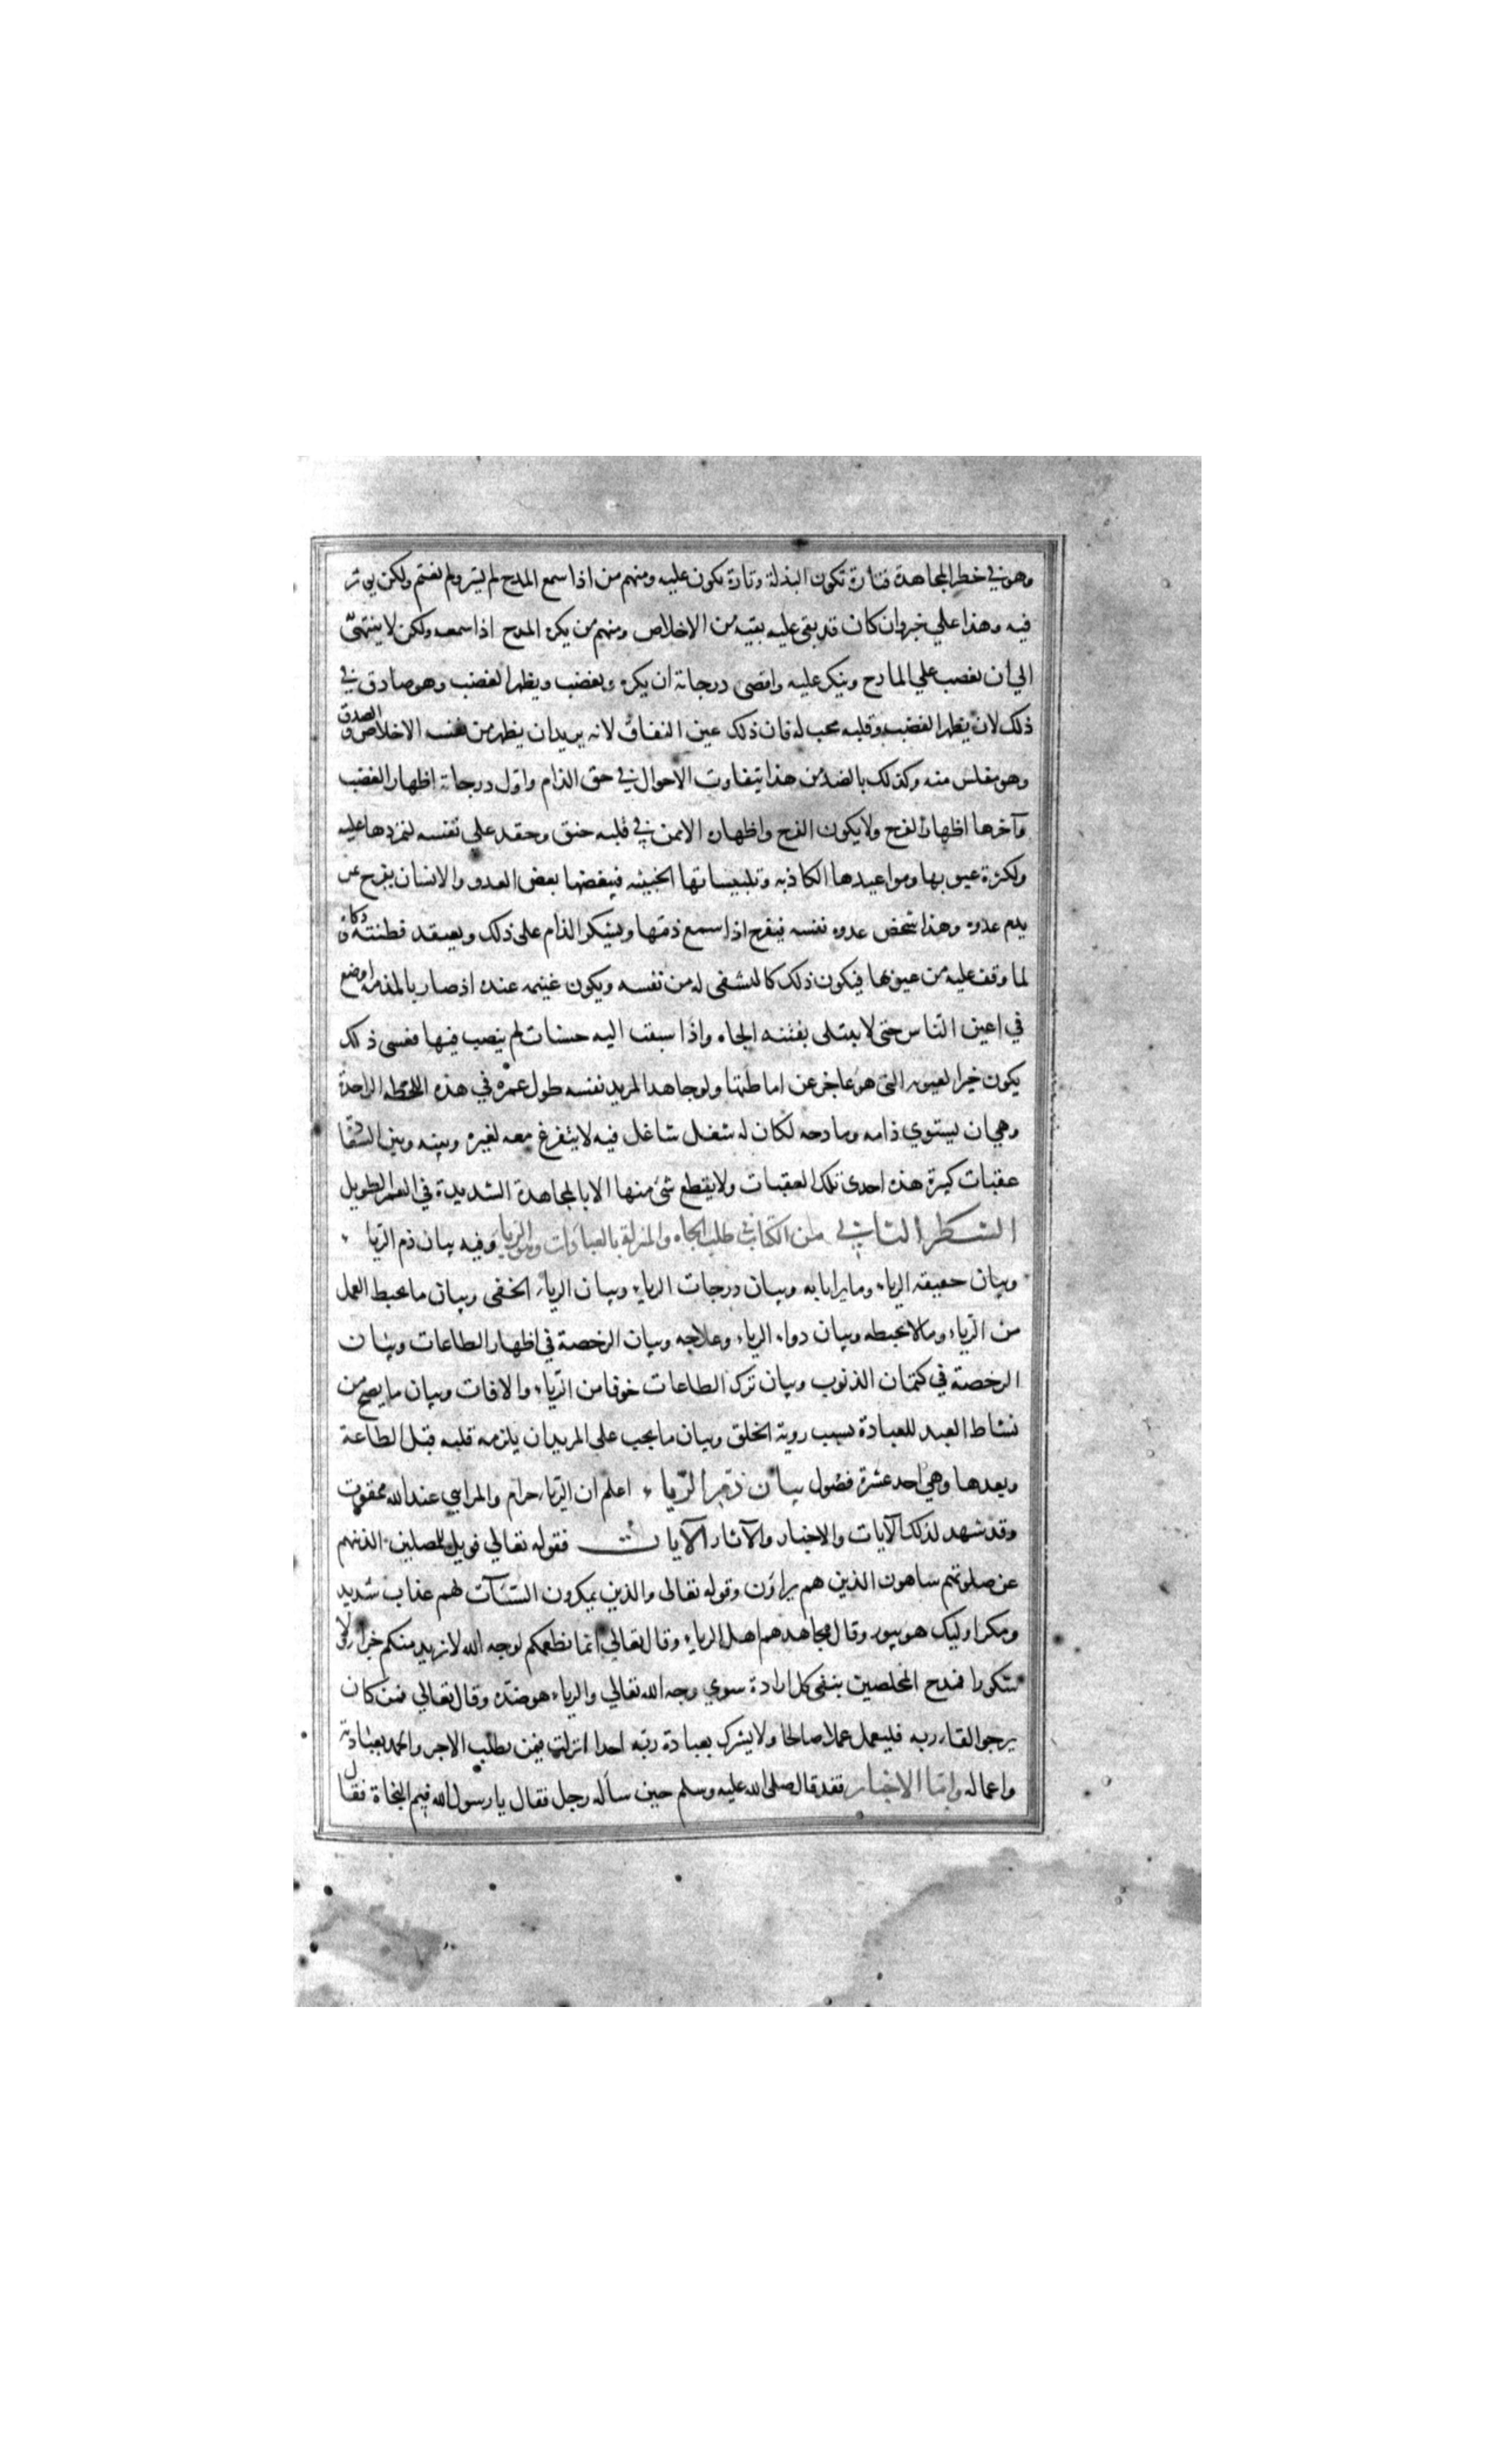 وهو في خطر المجاهدة فتارة تكون البذلة وتارة تكون عليه ومنهم من اذا سمع المدح لم يسر ولم يغتم ولكن يوثر
فيه وهذا علي خير وان كان قد بقي عليه بقية من الاخلاص ومنهم من يكره المدح اذا سمعه ولكن لا ينتهي
الي أن يغضب علي المادح وينكر عليه واقصى درجاته ان يكره ويغضب ويظهر الغضب وهو صادق في
ذلك لان يظهر الغضب وقلبه محب له فان ذلك عين النفاق لانه يريد ان يظهر من نفسه الاخلاص والصدق
وهو مفلس منه وكذلك بالضد من هذا يتفاوت الاحوال في حق الذام واول درجاته اظهار الغضب
وآخرها اظهار الفرح ولا يكون الفرح واظهاره الا ممن في قلبه حنق وحقد علي نفسه لتمردها عليه
ولكثرة عيوبها ومواعيدها الكاذبه وتلبيساتها الخبيثه فيبغضها بغض العدو والانسان يفرح ممن
يذم عدوه وهذا شخص عدوه نفسه فيفرح اذا سمع ذمها ويشكر الذام على ذلك ويعتقد فطنته وذكاه
لما وقف عليه من عيوبها فيكون ذلك كالتشفي له من نفسه ويكون غنيمه عنده اذ صار بالمذمه اوضع
في اعين الناس حتى لا يبتلى بفتنه الجاه واذا سبقت اليه حسنات لم ينصب فيها فعسى ذلك
يكون خيرا لعيوبه التي هو عاجز عن اماطتها ولو جاهد المريد نفسه طول عمره في هذه اللحظه الواحدة
وهي ان يستوي ذامه ومادحه لكان له شغل شاغل فيه لا يتفرغ معه لغيره وبينه وبين السعادة
عقبات كثيرة هذه احدى تلك العقبات ولا يقطع شئ منها الا بالمجاهدة الشديدة في العمر الطويل
الشطر الثاني من الكتاب في طلب الجاه والمنزلة بالعبادات وهو الرياء وفيه بيان ذم الرياء
وبيان حقيقه الرياء وما يراءا به وبيان درجات الرياء وبيان الرياء الخفى وبيان ما يحبط العمل
من الرياء وما لا يحبطه وبيان دواء الرياء وعلاجه وبيان الرخصة في اظهار الطاعات وبيان
الرخصة في كتمان الذنوب وبيان ترك الطاعات خوفا من الرياء والافات وبيان ما يصح من
نشاط العبد للعبادة بسبب روية الخلق وبيان ما يجب على المريد ان يلزمه قلبه قبل الطاعة
وبعدها وهي احد عشرة فصول بيان ذم الرياء اعلم ان الرياء حرام والمرايي عند الله ممقوت
وقد شهد لذلك الآيات والاخبار والآثار الآيات فقوله تعالي فويل للمصلين الذينهم
عن صلوتهم ساهون الذين هم يراؤن وقوله تعالى والذين يمكرون السيئآت لهم عذاب شديد
ومكر اوليك هو يبور وقال مجاهد هم اهل الرياء وقال تعالي انما نطعمكم لوجه الله لا نريد منكم جزاء ولا
شكورا فمدح المخلصين بنفى كل ارادة سوي وجه الله تعالي والرياء هو ضده وقال تعالي فمن كان
يرجوا لقاء ربه فليعمل عملا صالحا ولا يشرك بعبادة ربه احدا انزلت فيمن يطلب الاجر والحمد بعبادته
واعماله واما الاخبار فقد قال صلى الله عليه وسلم حين سأله رجل فقال يا رسول الله فيم النجاة فقال